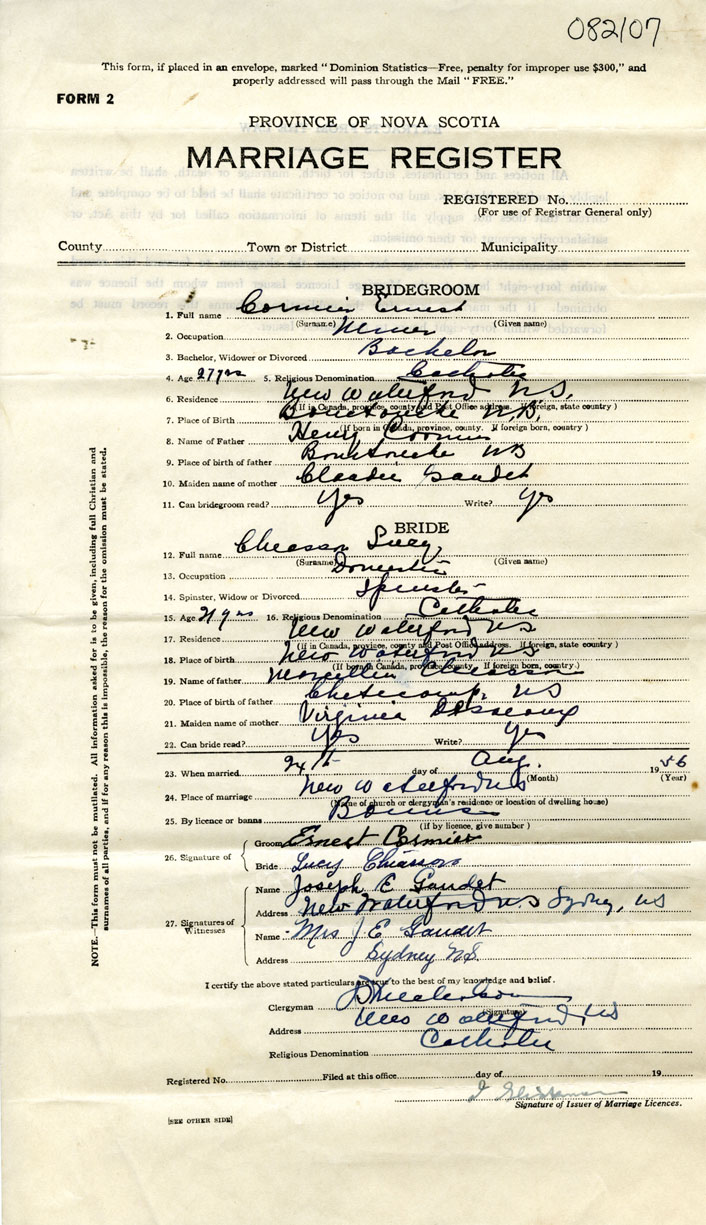 082107
This form, if placed in an envelope, marked "Dominion Statistics—Free, penalty for improper use $300," and
properly addressed will pass through the Mail "FREE."
FORM 2
PROVINCE OF NOVA SCOTIA
MARRIAGE REGISTER
REGISTERED No.
(For use of Registrar General only)
County Town or District Municipality
BRIDEGROOM
1. Full name Cormier Ernest
(Surname) (Given name)
2. Occupation Miner
3. Bachelor, Widower or Divorced Bachelor
4. Age 27 yrs 5. Religious Denomination Catholic
6. Residence New Waterford N.S.
(If in Canada, province, county and Post Office address. If foreign, state country)
7. Place of Birth Bouctouche N.B.
(If born in Canada, province, county. If foreign born, country)
8. Name of Father Henry Cormier
9. Place of birth of father Bouctouche NB
10. Maiden name of mother Gaudet
11. Can bridegroom read? Yes Write? Yes
BRIDE
12. Full name Chiasson Lucy
(Surname) (Given name)
13. Occupation Domestic
14. Spinster, Widow or Divorced Spinster
15. Age 21 yrs 16. Religious Denomination Catholic
17. Residence New Waterford NS
(If in Canada, province, county and Post Office address. If foreign, state country)
18. Place of birth New Waterford NS
(If born in Canada, province, county. If foreign born, country.)
19. Name of father Marcellin Chiasson
20. Place of birth of father Cheticamp, NS
21. Maiden name of mother Virginia
22. Can bride read? Yes Write? Yes
23. When married 24th day of Aug. 1956
(Month) (Year)
24. Place of marriage New Waterford NS
(Name of church or clergyman's residence or location of dwelling house)
25. By licence or banns Banns
(if by licence, give number)
26. Signature of Groom Ernest Cormier
Bride Lucy Chiasson
27. Signatures of Witnesses Name Joseph E Gaudet
Address New Waterford N.S Sydney, NS
Name Mrs J E Gaudet
Address Sydney N.S.
I certify the above stated particulars are true to the best of my knowledge and belief.
Clergyman
(Signature)
Address New Waterford, NS
Religious Denomination Catholic
Registered No. Filed at this office day of 19
Signature of Issuer of Marriage Licences.
[SEE OTHER SIDE]
NOTE.—This form must not be mutilated. All information asked for is to be given, including full Christian and
surnames of all parties, and if for any reason this is impossible, the reason for the omission must be stated.